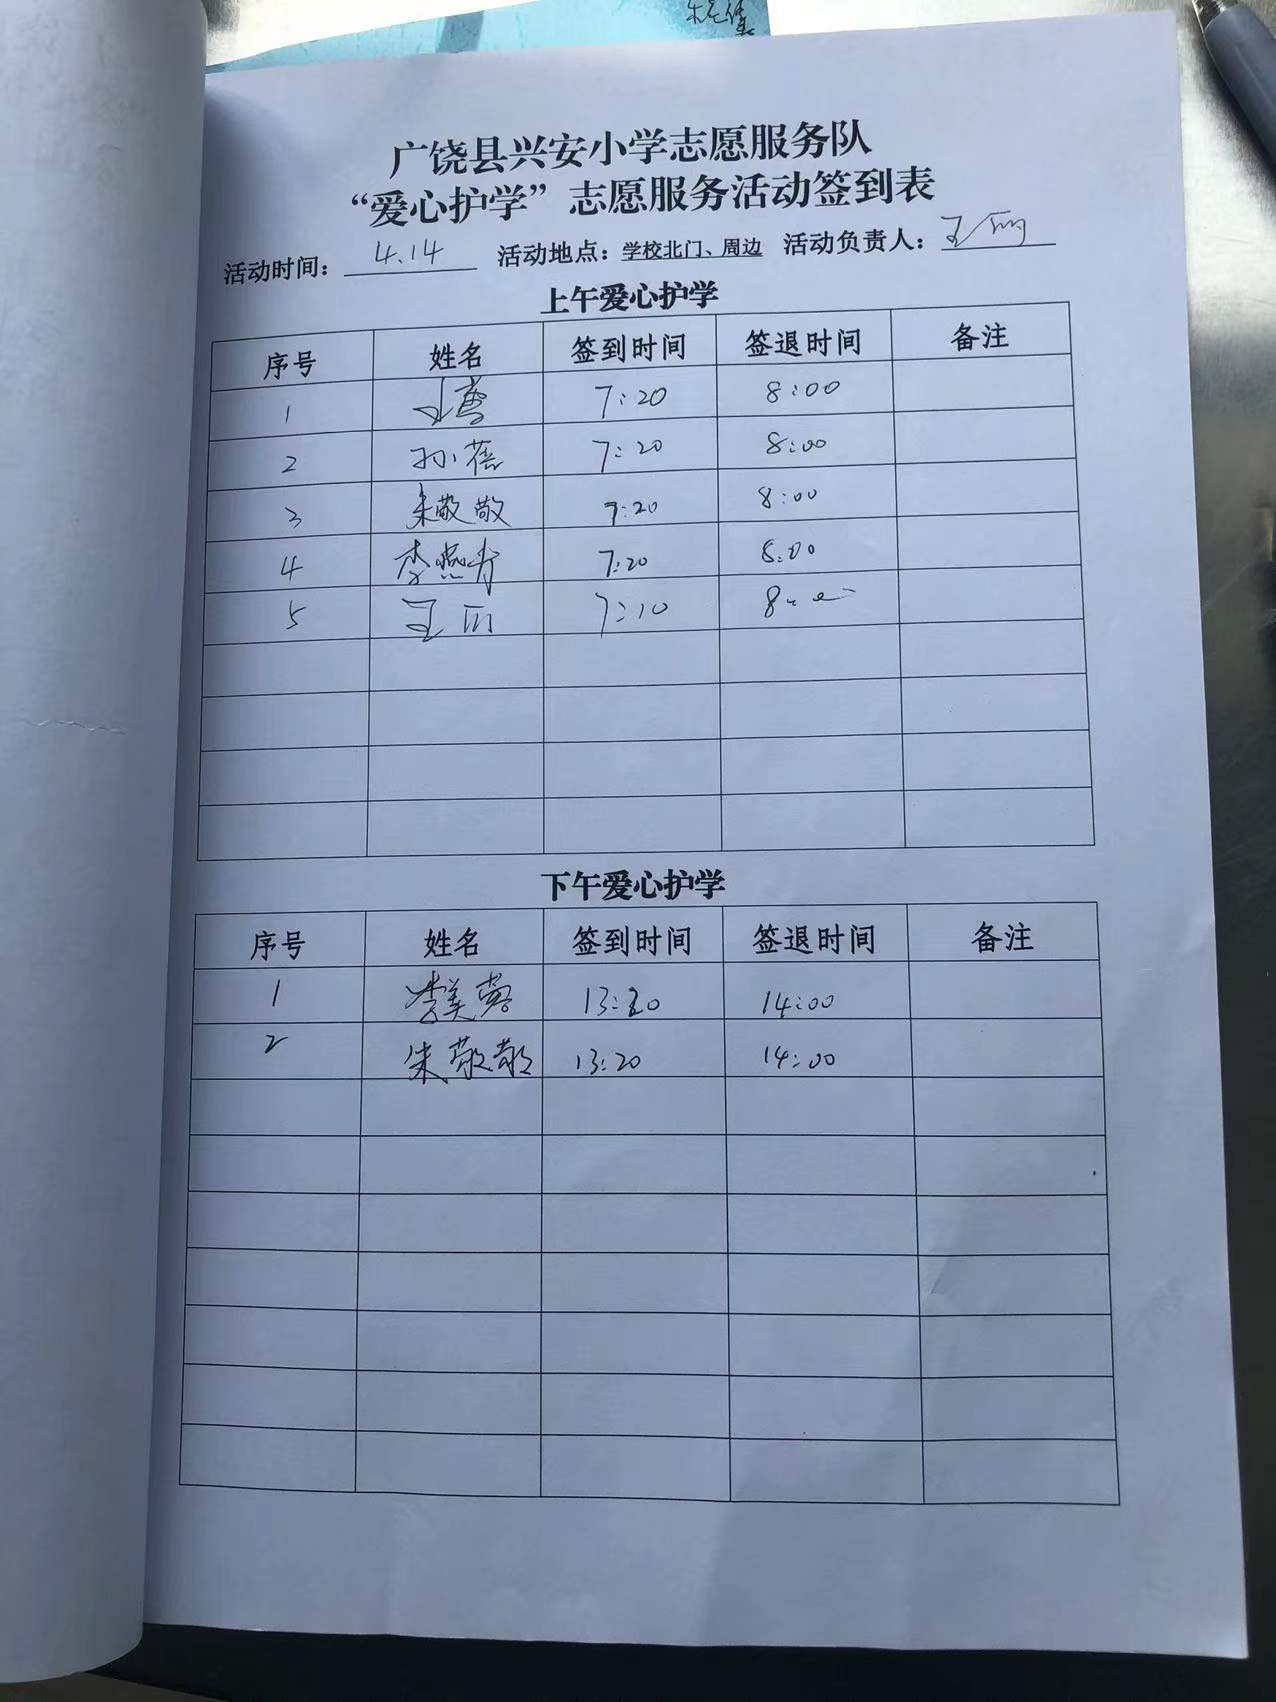 广饶县兴安小学志愿服务队
“爱心护学”志愿服务活动签到表
活动时间：4.14 活动地点：学校北门、周边 活动负责人：王丽
上午爱心护学
序号 姓名 签到时间 签退时间 备注
1 7:20 8:00
2 孙蓓 7:20 8:00
3 朱敬敬 7:20 8:00
4 李燕青 7:20 8:00
5 王丽 7:10 8:00
下午爱心护学
序号 姓名 签到时间 签退时间 备注
1 李美蓉 13:20 14:00
2 朱敬敬 13:20 14:00